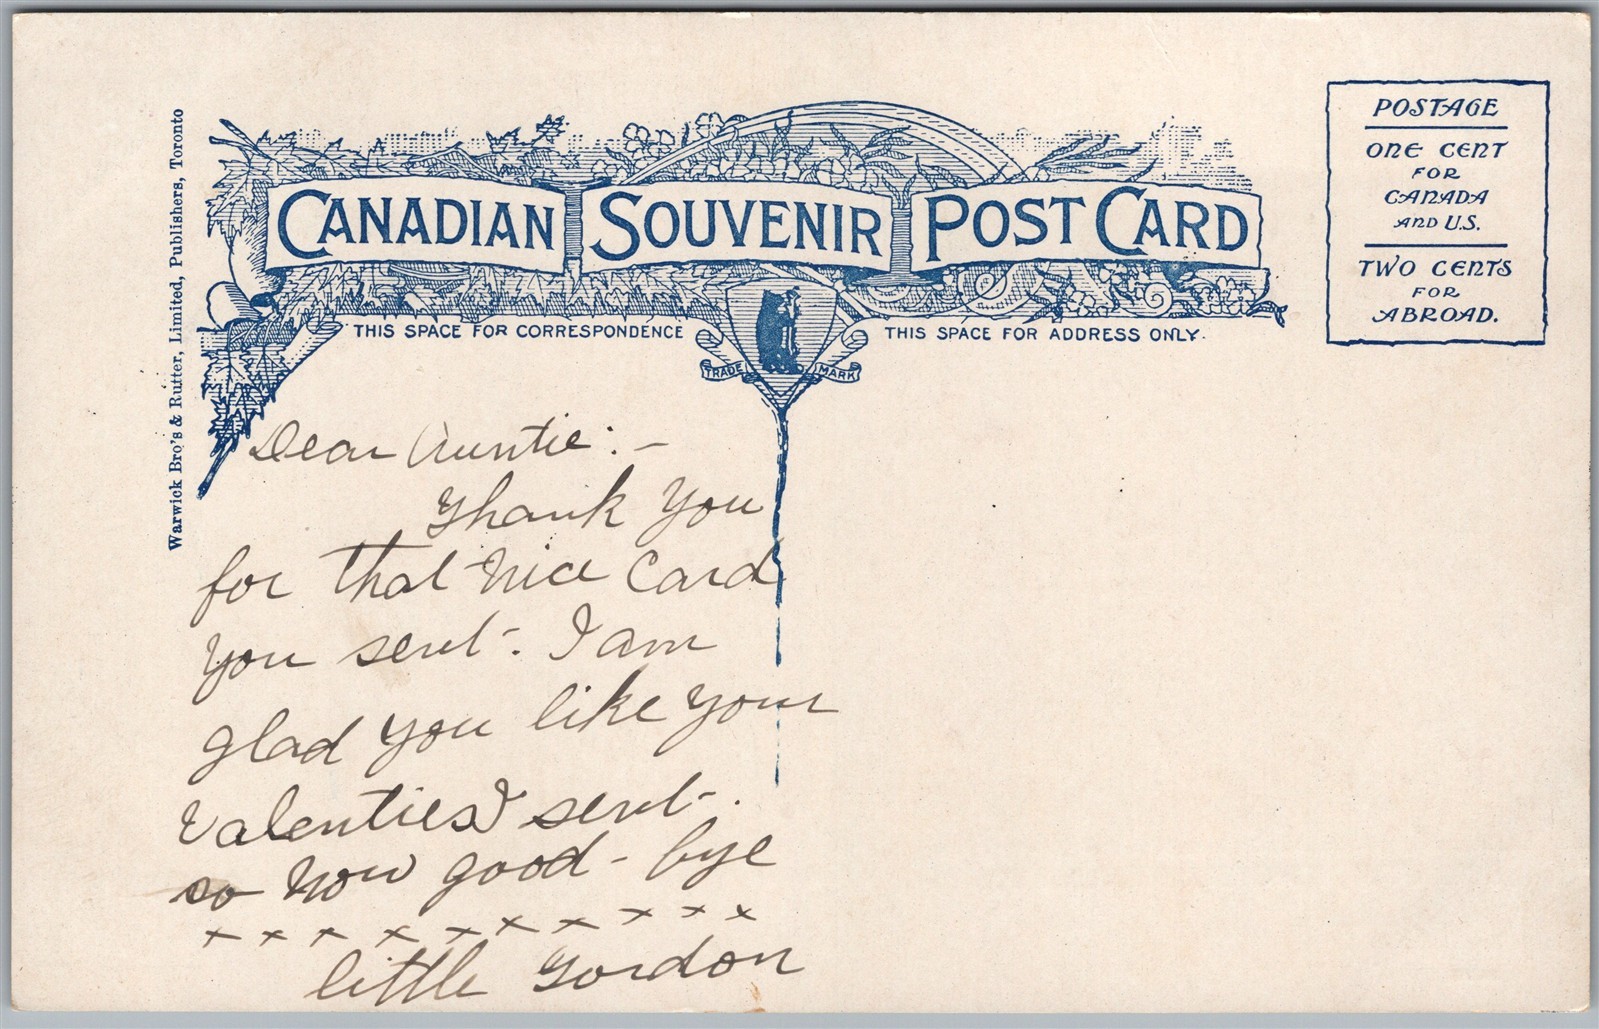 Warwick Bro's & Rutter, Limited, Publishers, Toronto
CANADIAN SOUVENIR POST CARD
THIS SPACE FOR CORRESPONDENCE
THIS SPACE FOR ADDRESS ONLY.
TRADE MARK
POSTAGE
ONE CENT
FOR
CANADA
AND U.S.
TWO CENTS
FOR
ABROAD.
Dear Auntie: –
Thank You
for that nice Card
you sent. I am
glad you like your
valenties I sent.
so now good-bye
x x x x x x x x x x
little Gordon